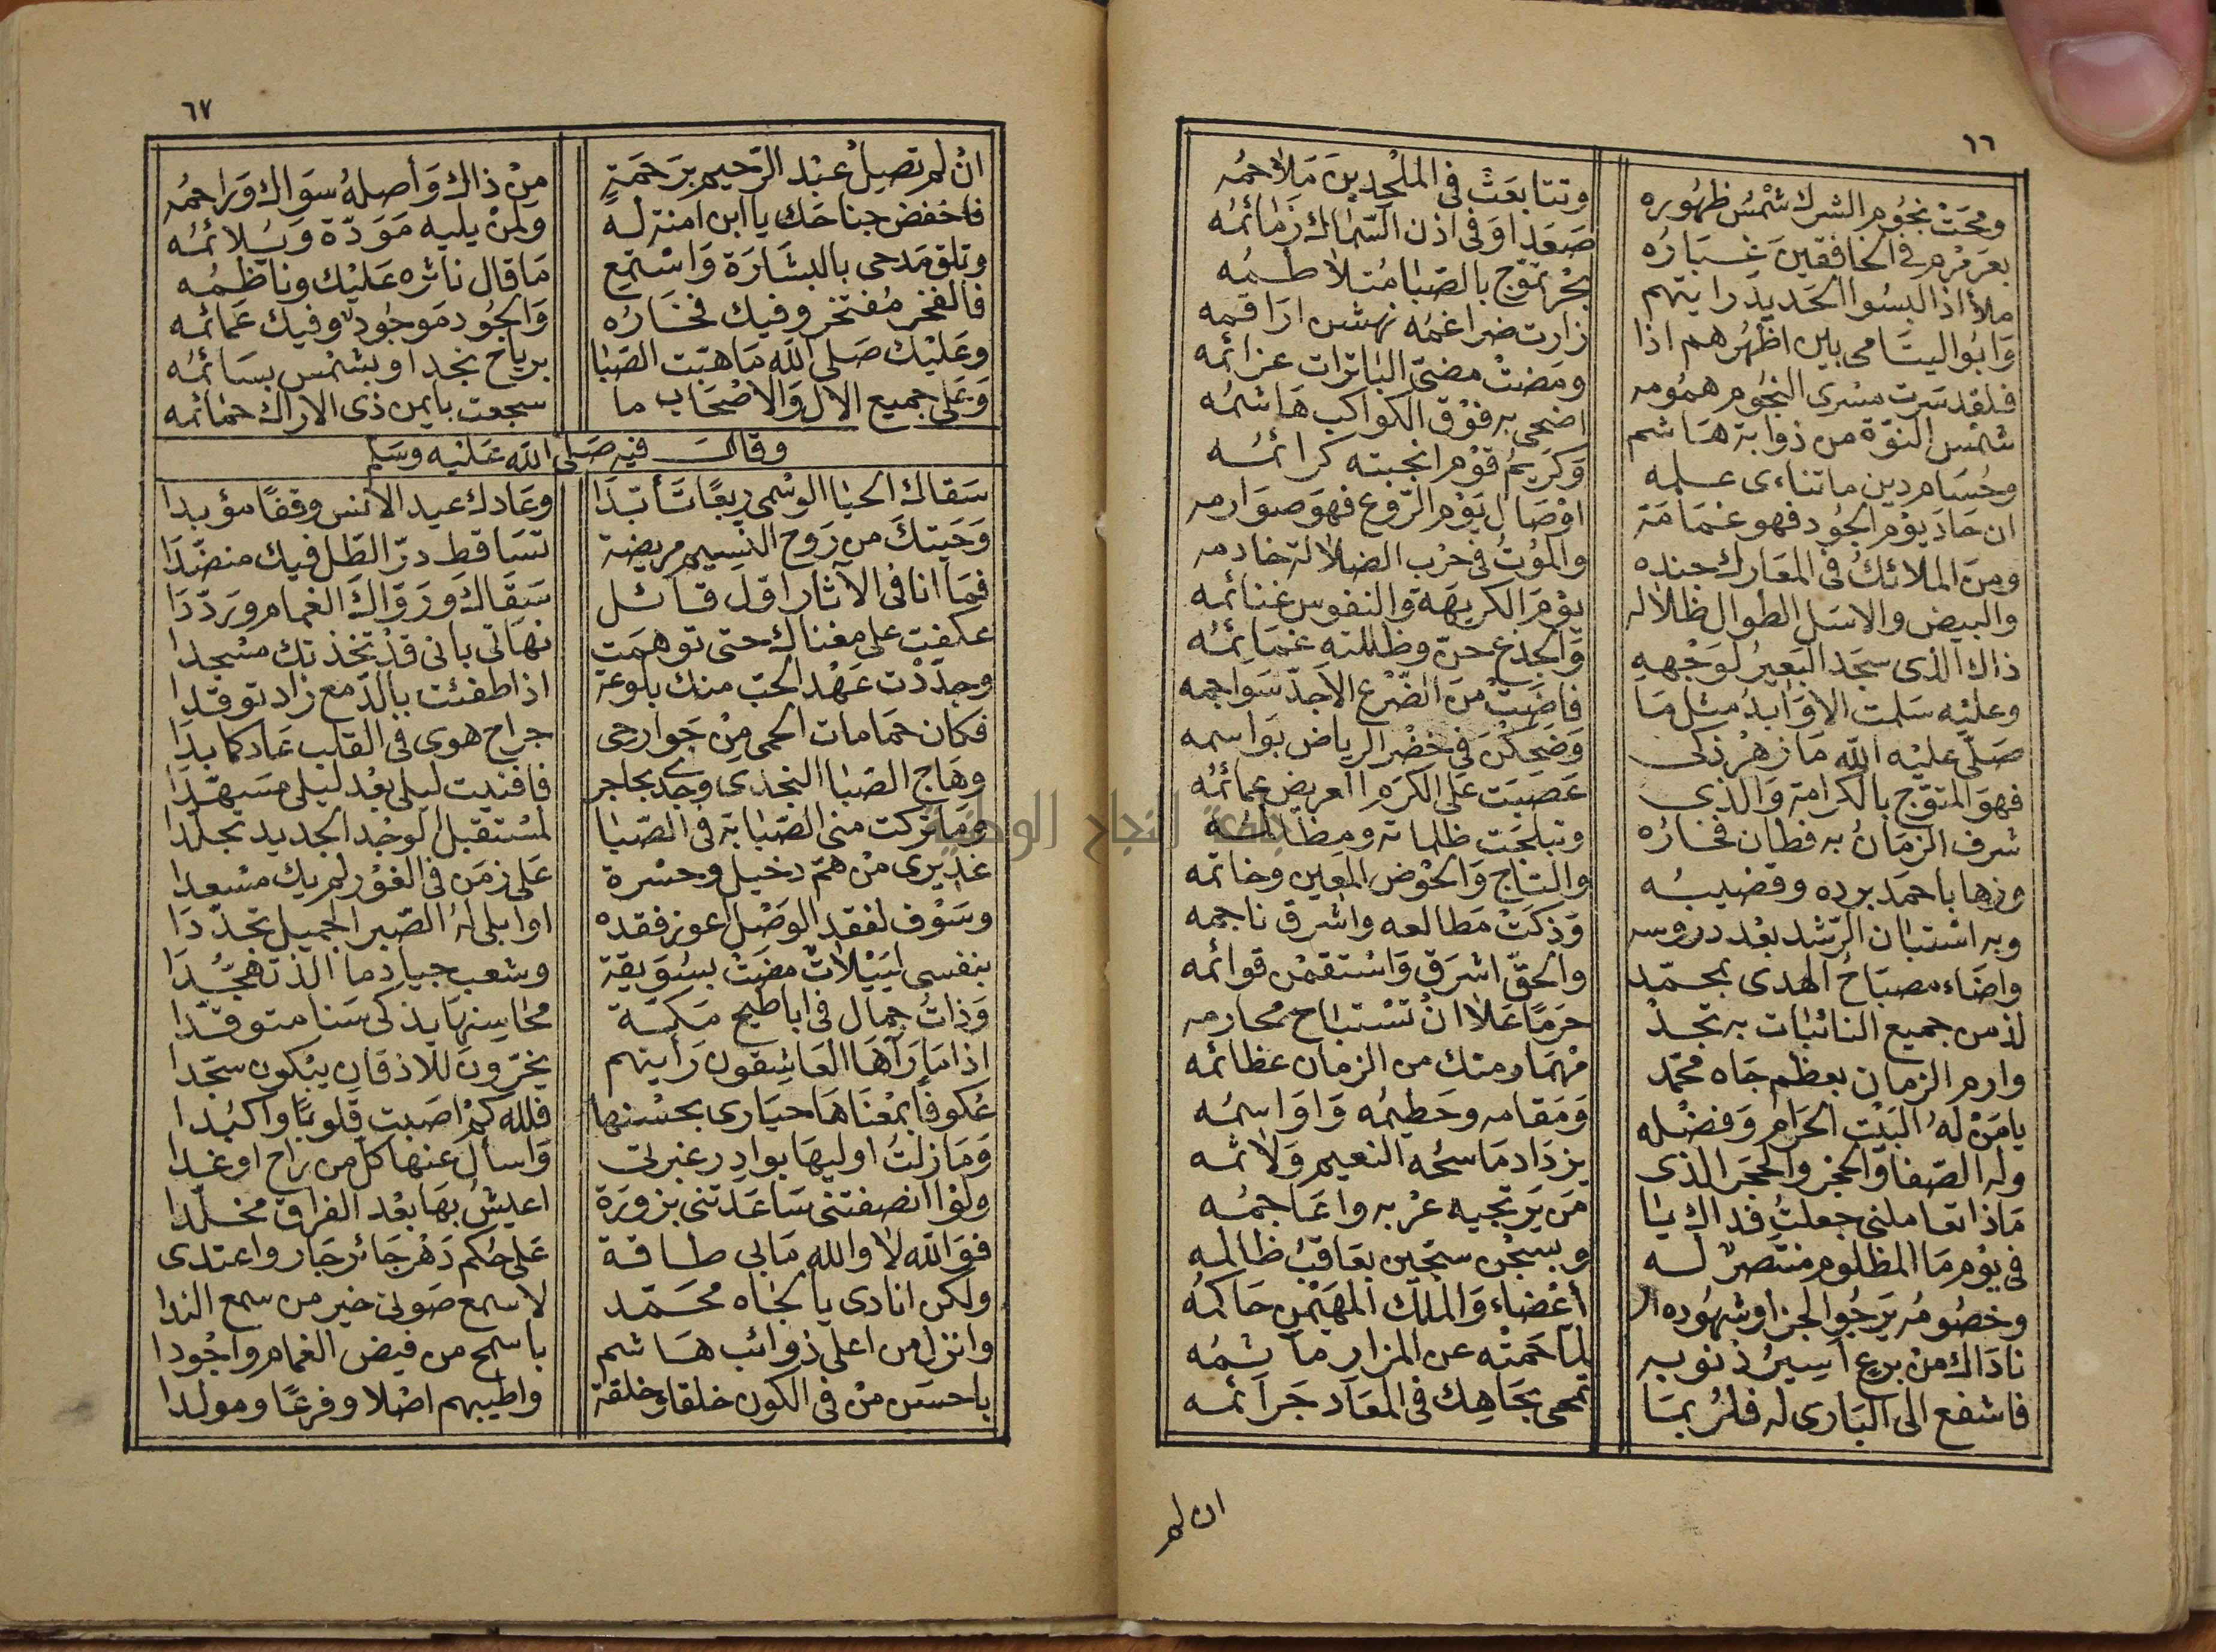 ٦٦
ومحت نجوم الشرك شمس ظهوره وتتابعت فى الملحدين ملاحمه
بعرمرم فى الخافقين غباره صعدا وفى اذن السماك زمائمه
ملأ اذا لبسوا الحديد رايتهم بحر تموج بالصبا متلاطمه
وابو اليتامى بين اظهرهم اذا زارت ضراغمه نهشن اراقمه
فلقد سرت مسرى النجوم همومه ومضت مضى الباترات عزائمه
شمس النبوة من ذوابة هاشم اضحى به فوق الكواكب هاشمه
وحسام دين ماتناءى علمه وكريم قوم انجبته كرائمه
ان جاد يوم الجود فهو غمامة اوصال يوم الروع فهو صوارمه
ومن الملائك فى المعارك جنده والموت فى حرب الضلالة خادمه
والبيض والاسل الطوال ظلاله يوم الكريهة والنفوس غنائمه
ذاك الذى سجد البعير لوجهه والجذع حن وظللته غمائمه
وعليه سلمت الاوابد مثل ما فاضت من الضرع الاجد سواجمه
صلى عليه الله ما زهر ذكى وضحكن فى خضر الرياض بواسمه
فهو المتوج بالكرامة والذى عصبت على الكرم العريض عمائمه
شرف الزمان به فطان فخاره وتبلجت ظلماته ومظالمه
وزها باحمد برده وقضيبه والتاج والحوض المعين وخاتمه
وبه استبان الرشد بعد دروسه وذكت مطالعه واشرق ناجمه
واضاء مصباح الهدى بمحمد والحق اشرق واستقمن قوائمه
لذ من جميع النائبات به تجد حرما علا ان تستباح محارمه
وارم الزمان بعظم جاه محمد مهما رمتك من الزمان عظائمه
يا من له البيت الحرام وفضله ومقامه وحطيمه واواسمه
وله الصفا والحجر والحجر الذى يزداد ماسحه النعيم ولاثمه
ماذا تعاملنى جعلت فداك يا من يرتجيه عربه واعاجمه
فى يوم ما المظلوم منتصر له وبسجن سجين يعاقب ظالمه
وخصومه يرجوا لجزا وشهوده ال أعضاء والملك المهيمن حاكمه
ناداك من برع اسير ذنوبه لما حمته عن المزار مآثمه
فاشفع الى البارى له فلربما تمحى بجاهك فى المعاد جرائمه
ان لم
٦٧
ان لم تصل عبد الرحيم برحمة من ذاك واصله سواك وراحمه
فاخفض جناحك يا ابن امنة له ولمن يليه مودة ويلائمه
وتلق مدحى بالبشارة واستمع ما قال ناثره عليك وناظمه
فالفخر مفتخر وفيك فخاره والجود موجود وفيك غمائمه
وعليك صلى الله ما هبت الصبا برياح نجد او بشمس بسائمه
وعلى جميع الال والاصحاب ما سجعت بايمن ذى الاراك حمائمه
وقال فيه صلى الله عليه وسلم
سقاك الحيا الوسمى ربعا تأبدا وعادك عيد الانس وقفا مؤبدا
وحيتك من روح النسيم مريضة تساقط در الطل فيك منضدا
فما انا فى الآثار اول قائل سقاك ورواك الغمام ورددا
عكفت على مغناك حتى توهمت نهاتى بانى قد تخذتك مسجدا
وجددت عهد الحب منك بلوعة اذا طفئت بالدمع زاد توقدا
فكان حمامات الحمى من جوارحى جراح هوى فى القلب عاد كما بدا
وهاج الصبا النجدى وجدى بحاجر فافنيت ليلى بعد ليلى مسهدا
وما تركت منى الصبابة فى الصبا لمستقبل الوجد الجديد تجلدا
غديرى من هم دخيل وحسرة على زمن فى الغور لم يك مسعدا
وسوف لفقد الوصل اعوز فقده اوابلى له الصبر الجميل تجددا
بنفسى لييلات مضت بسويقة وشعب جياد ما الذ تهجدا
وذات جمال فى اباطيح مكة محاسنها يذكى سنا متوقدا
اذا ما رآها العاشقون رأيتهم يخرون للاذقان يبكون سجدا
عكوفا بمغناها حيارى بحسنها فلله كم اصبت قلوبا واكبدا
وما زلت اوليها بوادر غبرتى واسأل عنها كل من راح او غدا
ولو انصفتنى ساعدتنى بزورة اعيش بها بعد الفراق مخلدا
فوالله لا والله مابى طاقة على حكم دهر جائر جار واعتدى
ولكن انادى يا لجاه محمد لاسمع صوتى خير من سمع الندا
وانزل من اعلى ذوائب هاشم باسمح من فيض الغمام واجودا
باحسن من فى الكون خلقا وخلقة واطيبهم اصلا وفرعا ومولدا